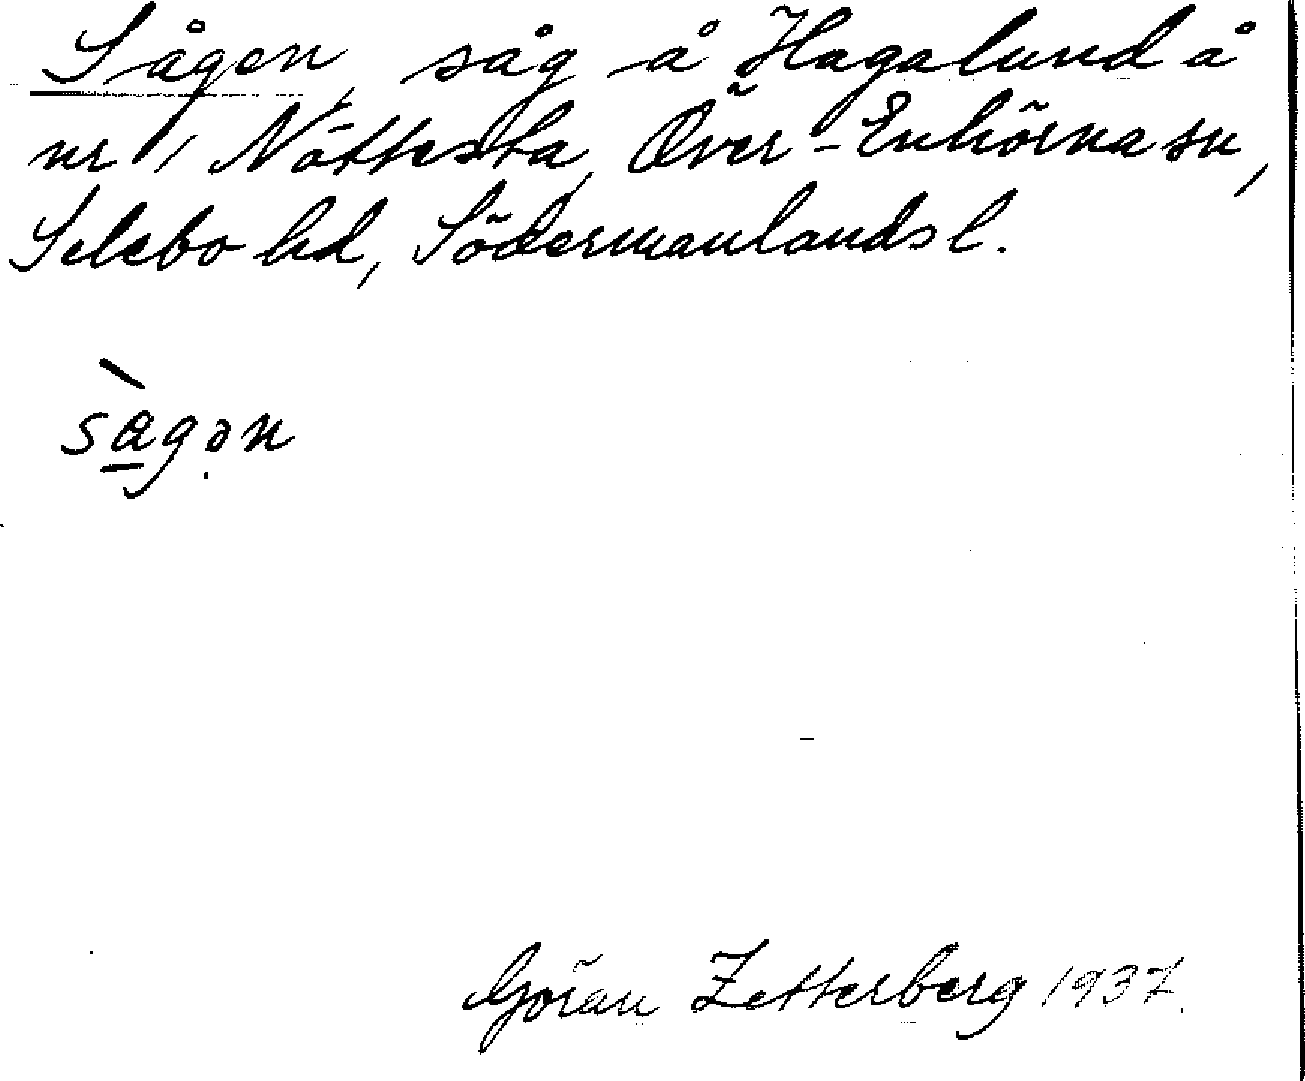 Sågen, såg å Hagalund å
nr 1 Nöttesta, Över-Enhörna sn,
Selebo hd, Södermanlands l.
sàgən
Göran Zetterberg 1937.